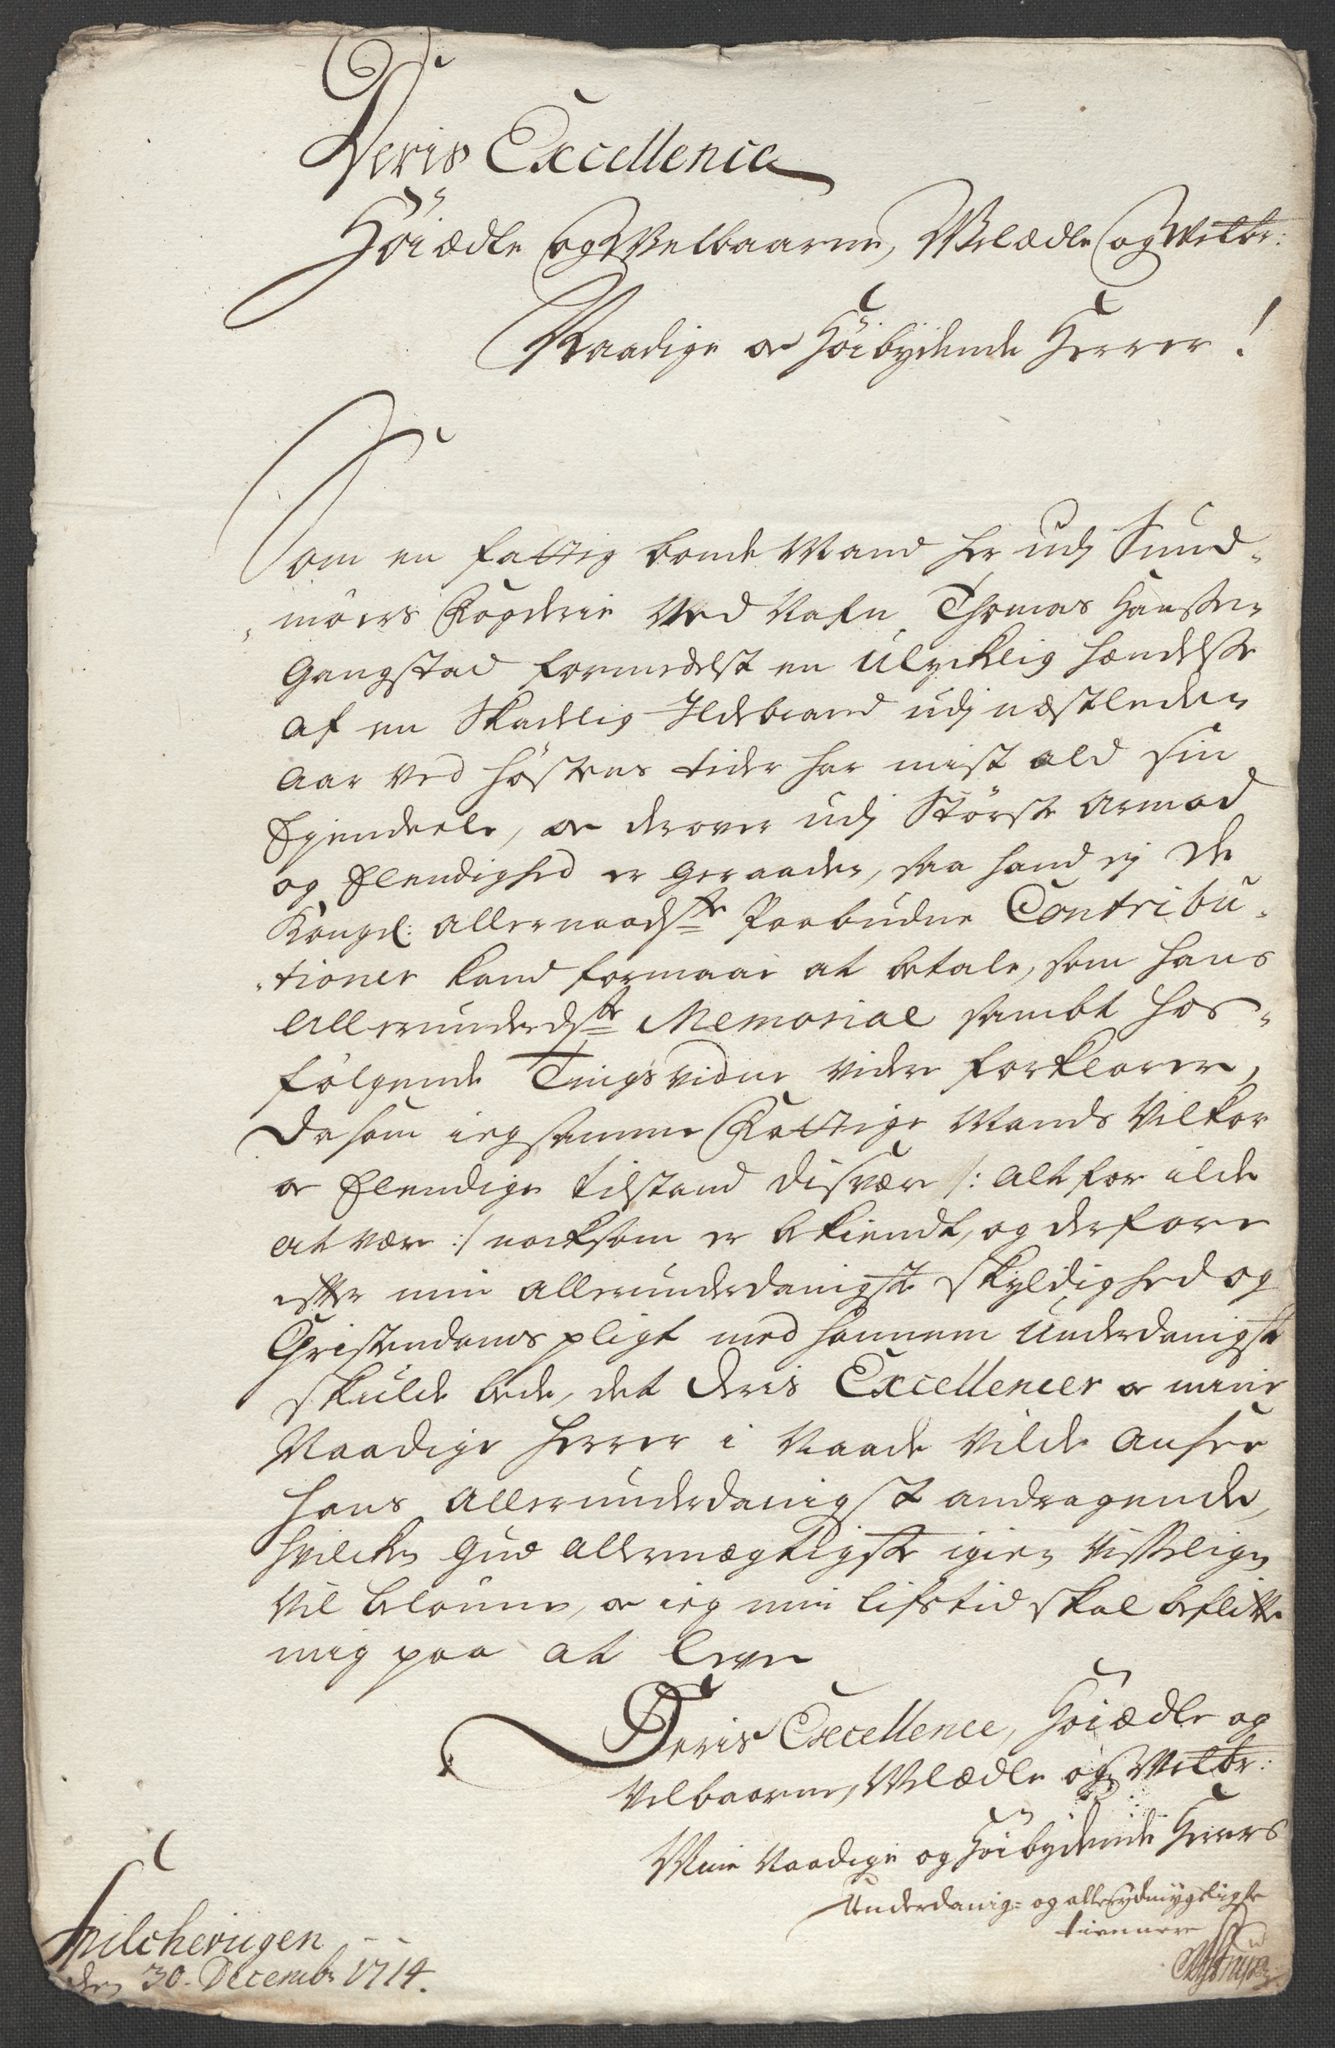 Deris Excellence
Höiædle og Velbaarne, Velædle og Velbr:
Naadige oc Höibydende Herrer!
Som en fattig bonde Mand her udj Sund-
möers Fogderie Ved Nafn Thomas Hanssen
Gangstad formedelst en Ulycklig hændelsse
af en Skadelig Ildebrand udj næstleden
Aar ved höstens tider har mist ald sin
Eÿendeele, oc derover udj Störste Armod
og Elendighed er Geraaden, saa hand ej de
Kongel: Allernaadste Paabudne Contribu-
tioner kand formaae at betale, som hans
Allerunderdste Memorial sambt hos-
fölgende Tingsvidne vidre forklarer,
Da som ieg samme Fattige Mands Vilkor
oc Elendige tilstand disvær /: Alt for ilde
at være :/ nocksom er bekiendt, og derfore
efter min Allerunderdanigste skyldighed og
Christendoms pligt med hannem Underdanigst
skulde bede, det Deris Excellencer oc mine
Naadige Herrer i Naade Vilde Ansee
hans Allerunderdanigst andragende,
hvilcken Gud Allermægtigste igien Visselig
Vil belönne, oc ieg min lifstid skal beflitte
mig paa at leve
Deris Excellence, Höiædle og
Velbaarne, Velædle og Velbr:
Mine Naadige og Höibydende Herrers
Underdanig- og allerydmygeligste
tienere
Spilchevigen
den 30. Decembr 1714.